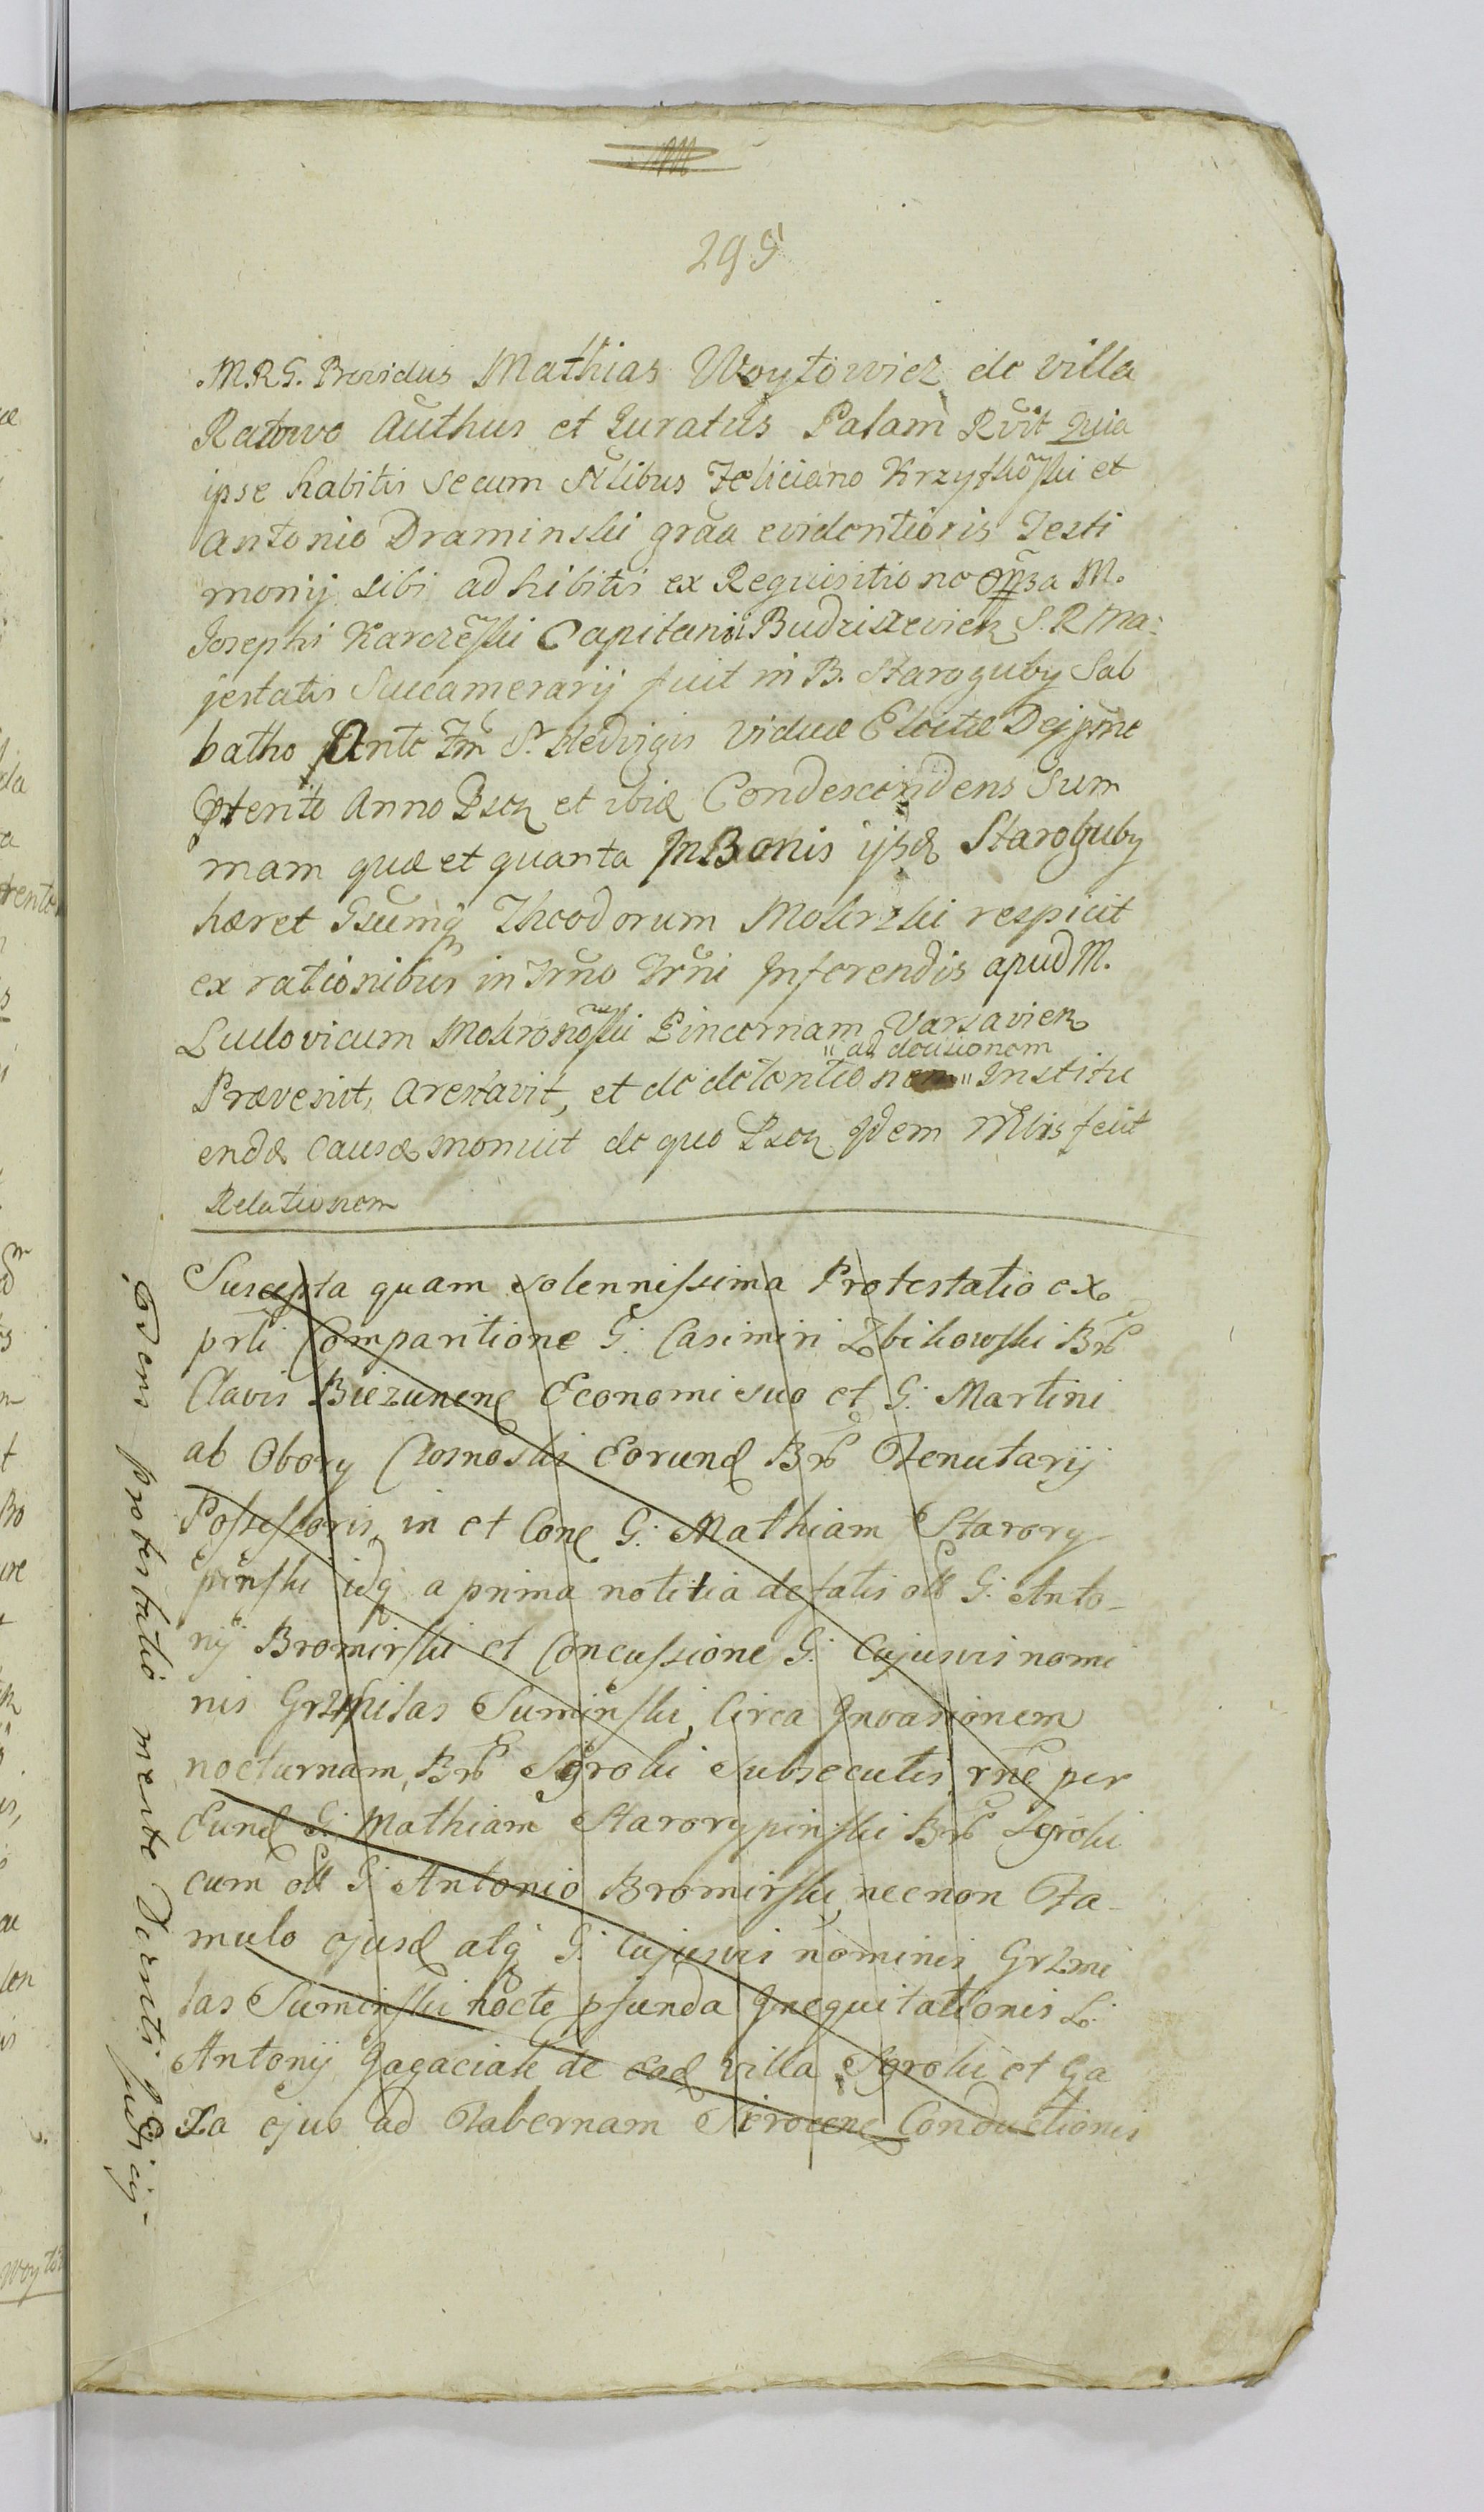 295
M.R.G. Providus Mathias Woytowicz de villa
Ratowo Authus et Juratus Palam Rvit Quia
ipse habitis secum Nlibus Feliciano Krzysko͠ski et
Antonio Draminski graa evidentioris Testi
monij sibi adhibitis ex Requisitione M.
Josephi Karcze͠ski Capitanei S. R Ma:
jestatis Succamerarij fuit in B. Staroguby Sab
batho Ante Fm S. Hedvigis Viduæ Electæ Dej
Anno et Condescendens Sum
mam quæ et quanta In Bonis Staroguby
hæret Gsumq Theodorum Mokrzki respicit
ex rationibus in Trno Trni Inferendis apud M.
Ludovicum Mokrono͠ski Pincernam Varsavien
"ad decisionem
Prævenit, arestavit, et de detentione Institu
endæ causæ monuit de quo Idem Mbris fecit
Relationem
Suscepta quam solennissima Protestatio ex
prti Comparitione G: Casimiri Zbikowski Brb
Clavis Biezunene Economi suo et G: Martini
ab Obory Eorund Brb Tenutarij
Possessoris, in et Cone G: Mathiam Starory
pinski idq a prima notitia de fatis olb G: Anto-
nij Bromirski et Concussione G: Cujusvis nomi
nis Grzmilas Suminski, Circa Invasionem
nocturnam, Brb Sgroki subsecutis rne per
Eund G: Mathiam Starorypinski Brb Sgroki
cum olb G: Antonio Bromirski, necnon Fa-
mulo ejusd atq G: Cujusvis nominis Grzmi
las Suminski nocte pfunda Inequitationis L:
Antonij Gagaciak de ead villa Sgroki et Ga
za ejus ad Tabernam Conductionis
Edens protestatio mente Ju͠dicij-